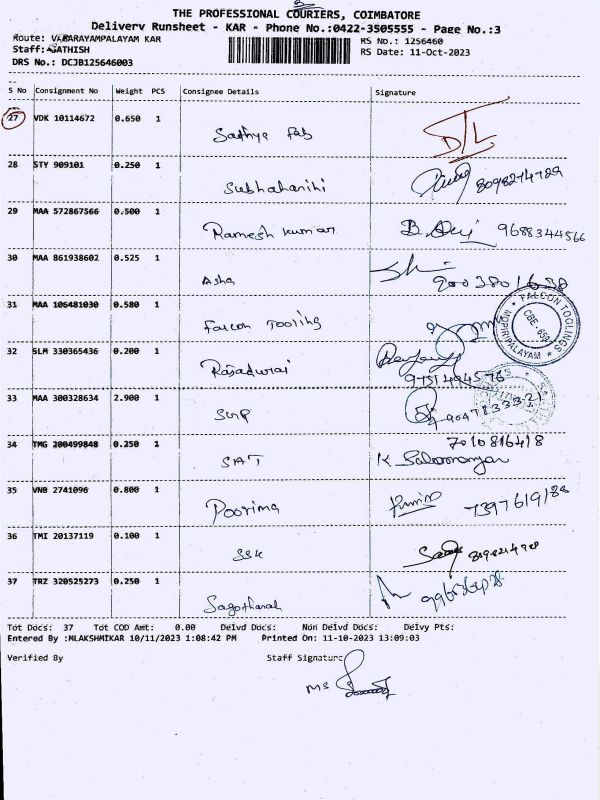 THE PROFESSIONAL COURIERS, COIMBATORE
Delivery Runsheet - KAR - Phone No.:0422-3505555 - Page No.:3
Route: VADARAYAMPALAYAM KAR
RS No.: 1256460
Staff: SATHISH
RS Date: 11-Oct-2023
DRS No.: DCJB125646003
S No Consignment No Weight PCS Consignee Details Signature
27 VDK 10114672 0.650 1
Sathya Fab
28 STY 909101 0.250 1
Subhaharihi 8098214729
29 MAA 572867566 0.500 1
Ramesh Kumar B. Devi 9688344566
30 MAA 861938602 0.525 1
Asha
31 MAA 106481030 0.580 1
Falcon Tooling
FALCON TOOLINGS
CBE-659
MOPIRIPALAYAM
32 SLM 330365436 0.200 1
Rajadurai
33 MAA 300328634 2.900 1
SVP
34 TMG 200499848 0.250 1
7010816418
SAT
35 VNB 2741096 0.800 1
Poorima
36 TMI 20137119 0.100 1
SSK
37 TRZ 320525273 0.250 1
Tot Docs: 37 Tot COD Amt: 0.00 Delvd Docs: Non Delvd Docs: Delvy Pts:
Entered By :MLAKSHMIKAR 10/11/2023 1:08:42 PM Printed On: 11-10-2023 13:09:03
Verified By Staff Signature